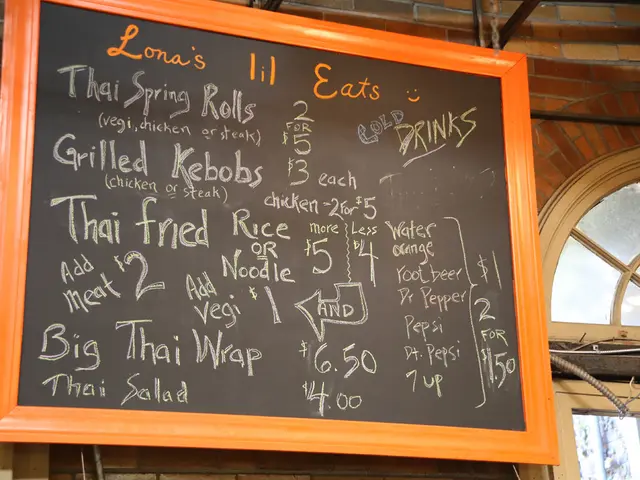 Lona's lil Eats
Thai Spring Rolls 2 FOR $5
(vegi, chicken or steak)
Grilled Kebobs $3 each
(chicken or steak)
chicken - 2 for $5
Thai fried Rice OR Noodle
more $5
Less $4
Add meat $2
Add vegi $1
AND
Big Thai Wrap $6.50
Thai Salad $4.00
COLD DRINKS
Water
orange
root beer
Dr Pepper
Pepsi
Dt. Pepsi
7 up
$1
2 FOR $1.50